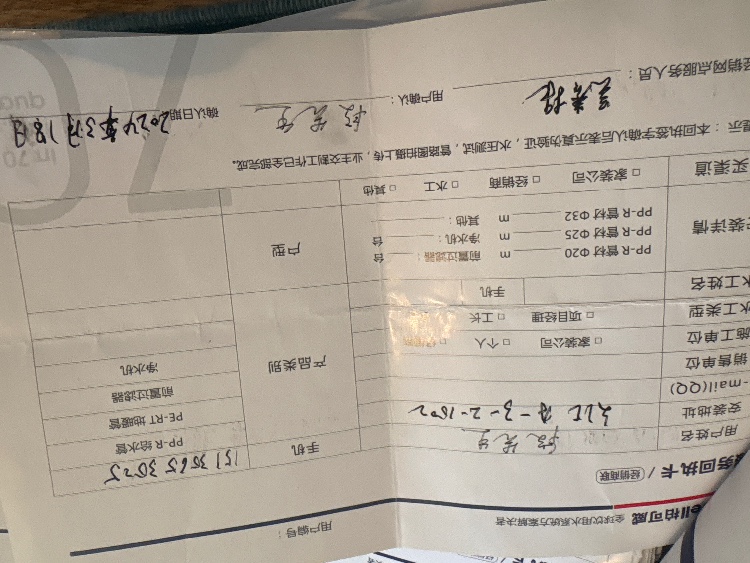 用户编号：
ell柏可威 全球饮用水系统方案解决者
务回执卡 / 经销商联
用户姓名 段先生 手机 151 3565 3025
安装地址 3-2-1502 PP-R 给水管
-mail(QQ) PE-RT 地暖管
销售单位 产品类别 前置过滤器
施工单位 □ 家装公司 □ 个人 净水机
水工类型 □ 项目经理 □ 工长
水工姓名 手机
装详情 PP-R 管材 Φ20 m 前置过滤器： 台 户型
PP-R 管材 Φ25 m 净水机： 台
PP-R 管材 Φ32 m 其他：
买渠道 □ 家装公司 □ 经销商 □ 水工 □ 其他
示：本回执签字确认后表示真为验证，水压测试，管路图拍摄上传，业主交割工作已全部完成。
经销网点服务人员： 用户确认： 段先生 确认日期： 2024年3月18日